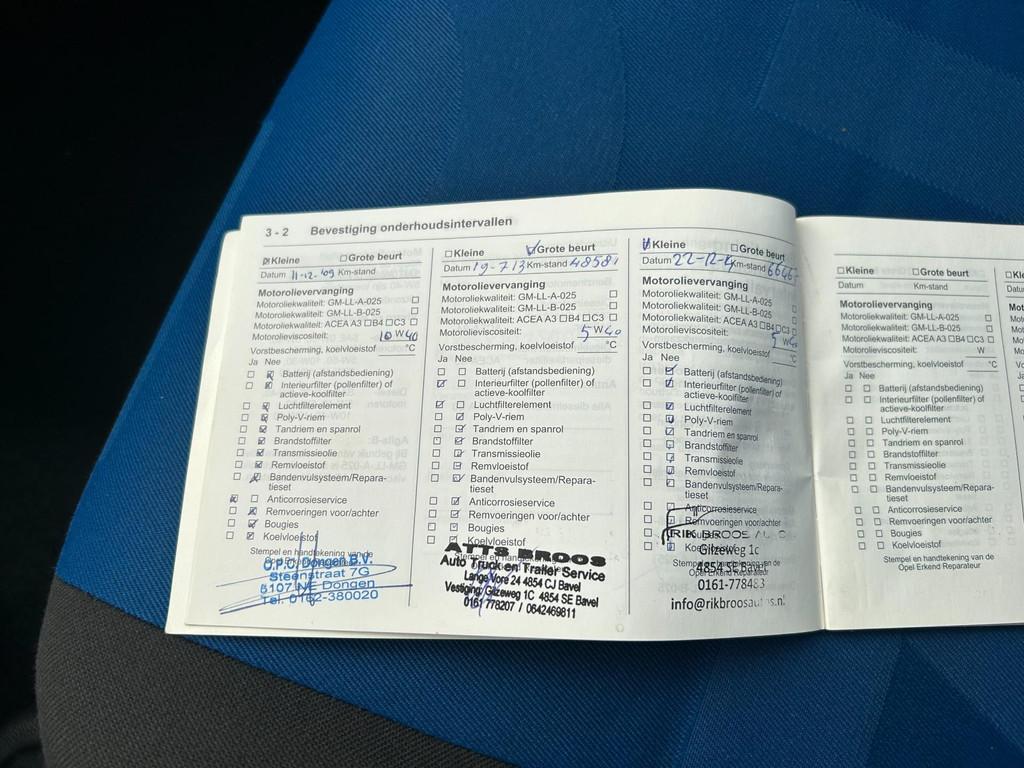 3 - 2 Bevestiging onderhoudsintervallen
Kleine Grote beurt
Datum 11-12-'09 Km-stand
Motorolievervanging
Motoroliekwaliteit: GM-LL-A-025
GM-LL-B-025
Motoroliekwaliteit: ACEA A3 B4 C3
Motorolieviscositeit: 10 W 40
Vorstbescherming, koelvloeistof °C
Ja Nee
Batterij (afstandsbediening)
Interieurfilter (pollenfilter) of
actieve-koolfilter
Luchtfilterelement
Poly-V-riem
Tandriem en spanrol
Brandstoffilter
Transmissieolie
Remvloeistof
Bandenvulsysteem/Repara-
tieset
Anticorrosieservice
Remvoeringen voor/achter
Bougies
Koelvloeistof
Stempel en handtekening van de
O.P.O. Dongen B.V.
Steenstraat 7G
5107 NE Dongen
Tel. 0162-380020
Kleine Grote beurt
Datum 19-7 13 Km-stand 48581
Motorolievervanging
Motoroliekwaliteit: GM-LL-A-025
GM-LL-B-025
Motoroliekwaliteit: ACEA A3 B4 C3
Motorolieviscositeit: 5 W 40
Vorstbescherming, koelvloeistof °C
Ja Nee
Batterij (afstandsbediening)
Interieurfilter (pollenfilter) of
actieve-koolfilter
Luchtfilterelement
Poly-V-riem
Tandriem en spanrol
Brandstoffilter
Transmissieolie
Remvloeistof
Bandenvulsysteem/Repara-
tieset
Anticorrosieservice
Remvoeringen voor/achter
Bougies
Koelvloeistof
ATTS BROOS
Auto Truck en Trailer Service
Lange Vore 24 4854 CJ Bavel
Vestiging: Gilzeweg 1C 4854 SE Bavel
0161 778207 / 0642469811
Kleine Grote beurt
Datum 22-12- Km-stand
Motorolievervanging
Motoroliekwaliteit: GM-LL-A-025
GM-LL-B-025
Motoroliekwaliteit: ACEA A3 B4 C3
Motorolieviscositeit: 5 W 40
Vorstbescherming, koelvloeistof °C
Ja Nee
Batterij (afstandsbediening)
Interieurfilter (pollenfilter) of
actieve-koolfilter
Luchtfilterelement
Poly-V-riem
Tandriem en spanrol
Brandstoffilter
Transmissieolie
Remvloeistof
Bandenvulsysteem/Repara-
tieset
Anticorrosieservice
Remvoeringen voor/achter
RIK BROOS
Gilzeweg 1c
4854 SE Bavel
Opel Erkend Reparateur
0161-778483
info@rikbroosautos.nl
Kleine Grote beurt
Datum Km-stand
Motorolievervanging
Motoroliekwaliteit: GM-LL-A-025
GM-LL-B-025
Motoroliekwaliteit: ACEA A3 B4 C3
Motorolieviscositeit: W
Vorstbescherming, koelvloeistof °C
Ja Nee
Batterij (afstandsbediening)
Interieurfilter (pollenfilter) of
actieve-koolfilter
Luchtfilterelement
Poly-V-riem
Tandriem en spanrol
Brandstoffilter
Transmissieolie
Remvloeistof
Bandenvulsysteem/Repara-
tieset
Anticorrosieservice
Remvoeringen voor/achter
Bougies
Koelvloeistof
Stempel en handtekening van de
Opel Erkend Reparateur